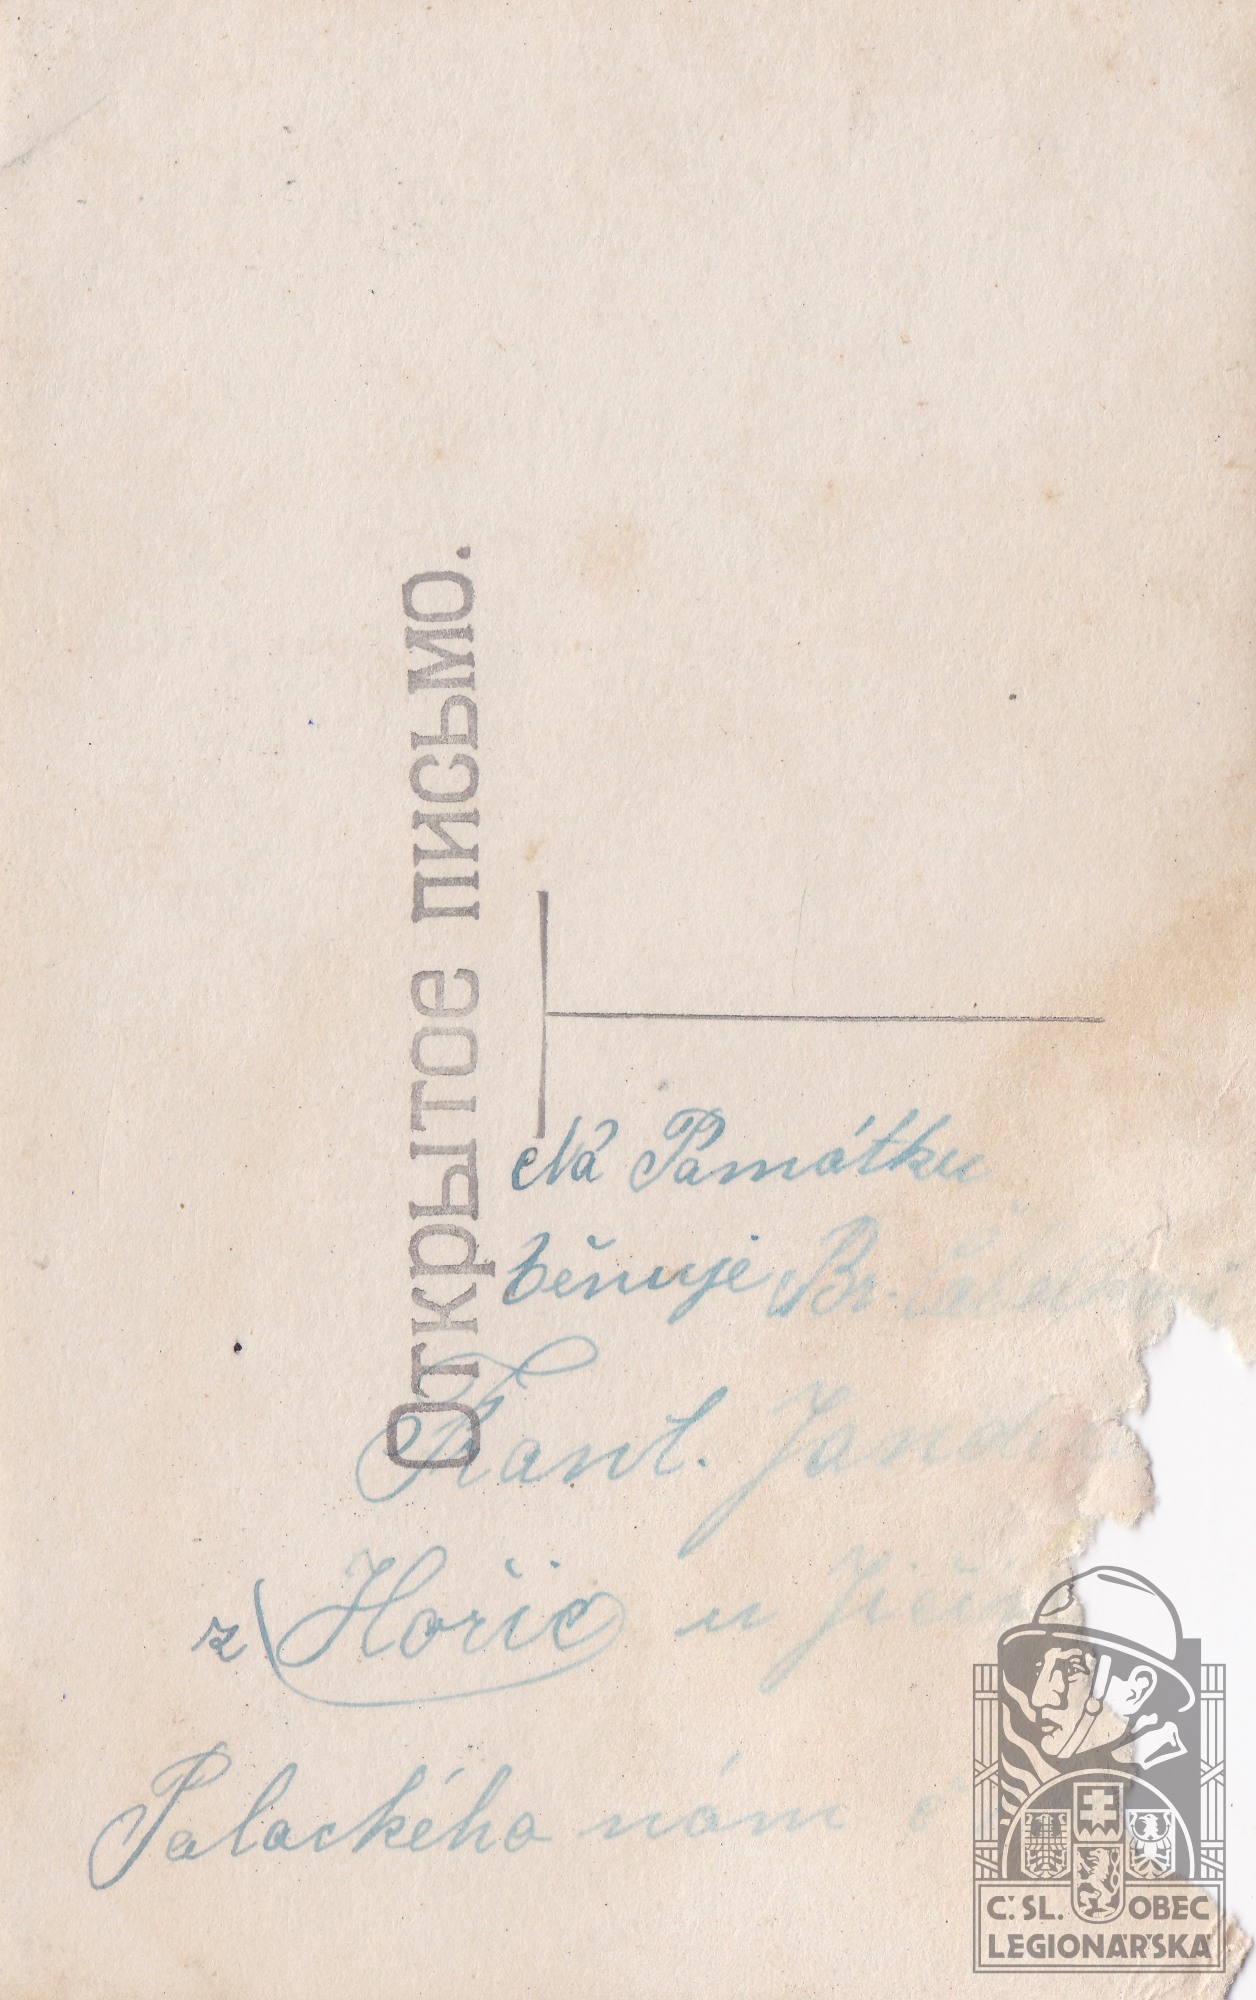 Открытое письмо.
Na Památku
věnuje Br.
Frant.
z Hořic u
Palackého nám
Č.SL. OBEC
LEGIONÁŘSKÁ